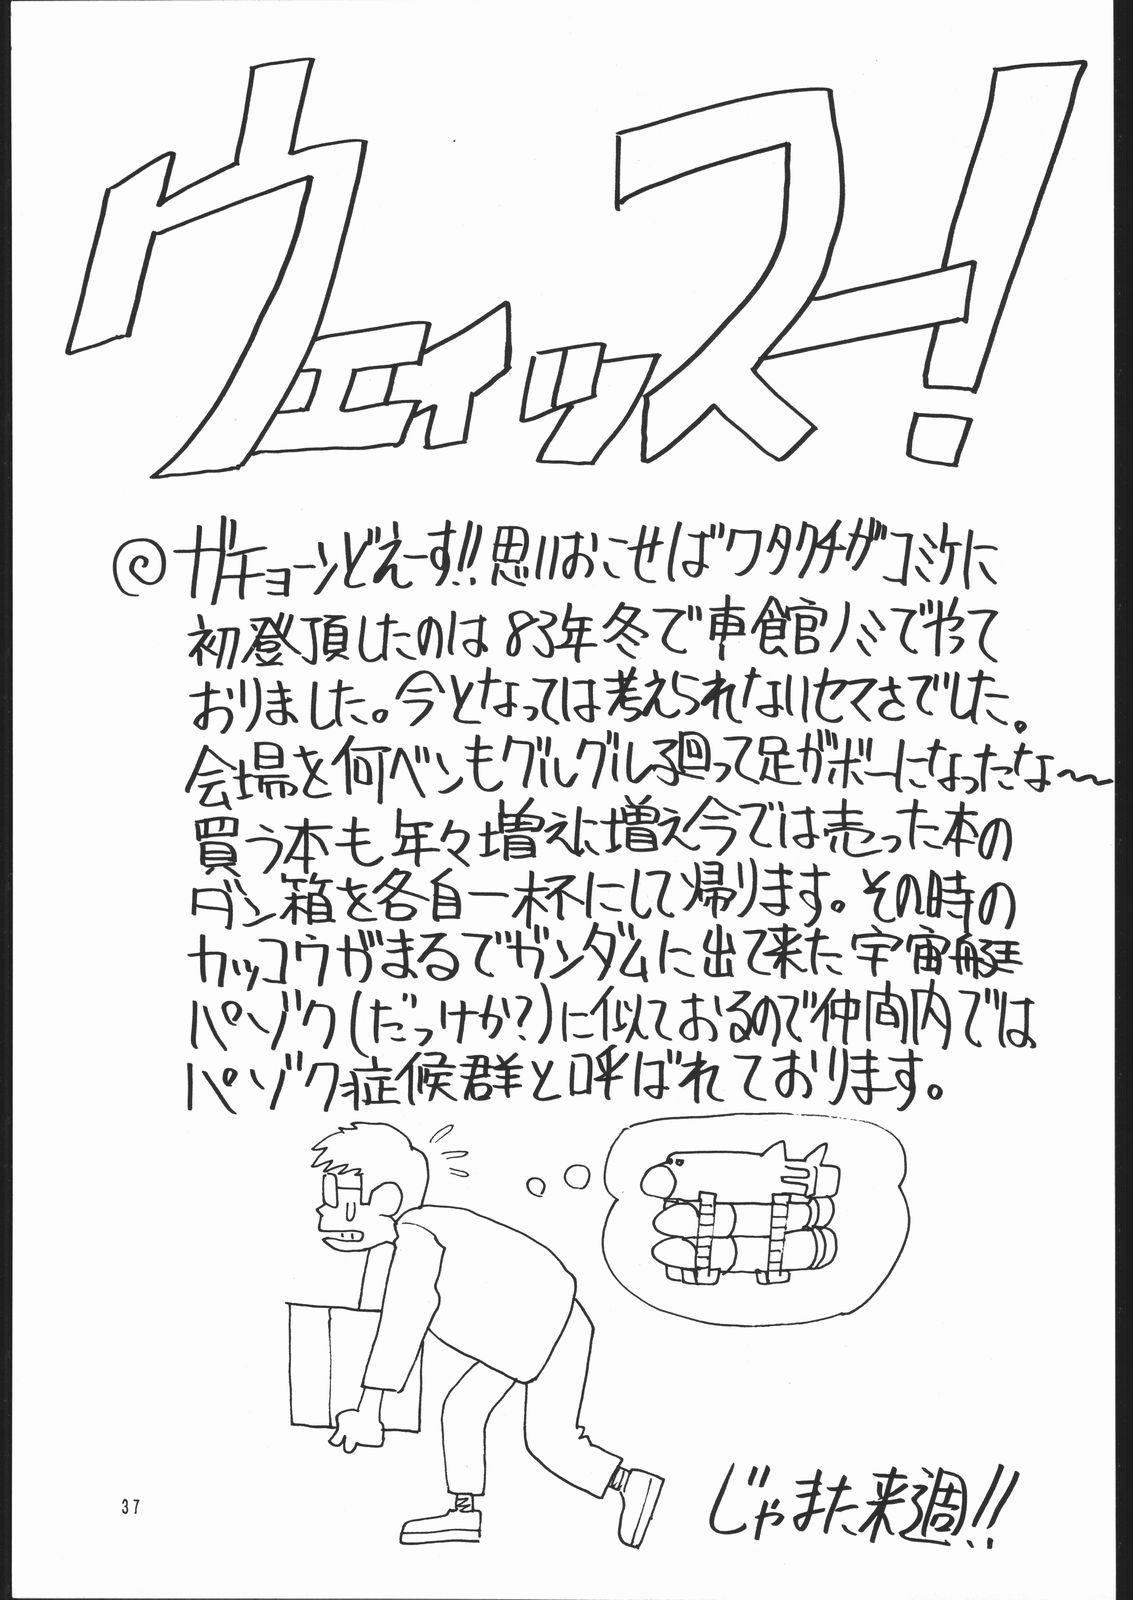 ウェイッスー!
ガチョーンどえーす!!思いおこせばワタクチがコミケに
初登頂したのは83年冬で車食官ノミでやって
おりました。今となっては考えられないセマさでした。
会場を何べンもグルグル廻って足がボーになったな〜
買う本も年々増えに増え今では売った本の
ダン箱を各自一杯にして帰ります。その時の
カッコウがまるでガンダムに出て来た宇宙艇
パゾク(だっけか?)に似ておるので仲間内では
パゾク症候群と呼ばれております。
じゃまた来週!!
37